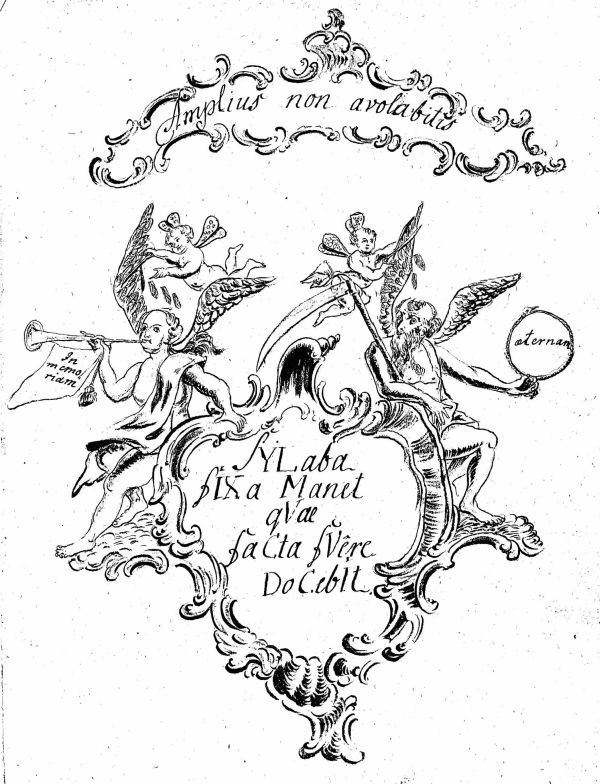 Amplius non avolabitis
In
memo
riam
æternam
SYLaba
fIXa Manet
qVæ
faCta fVêre
DoCebIt